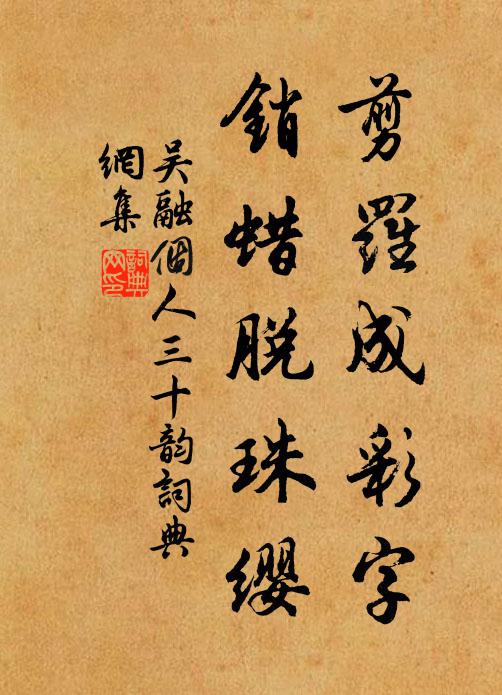 剪羅成彩字
銷蜡脱珠缨
吴融個人三十韵詞典
網集
詞典网印